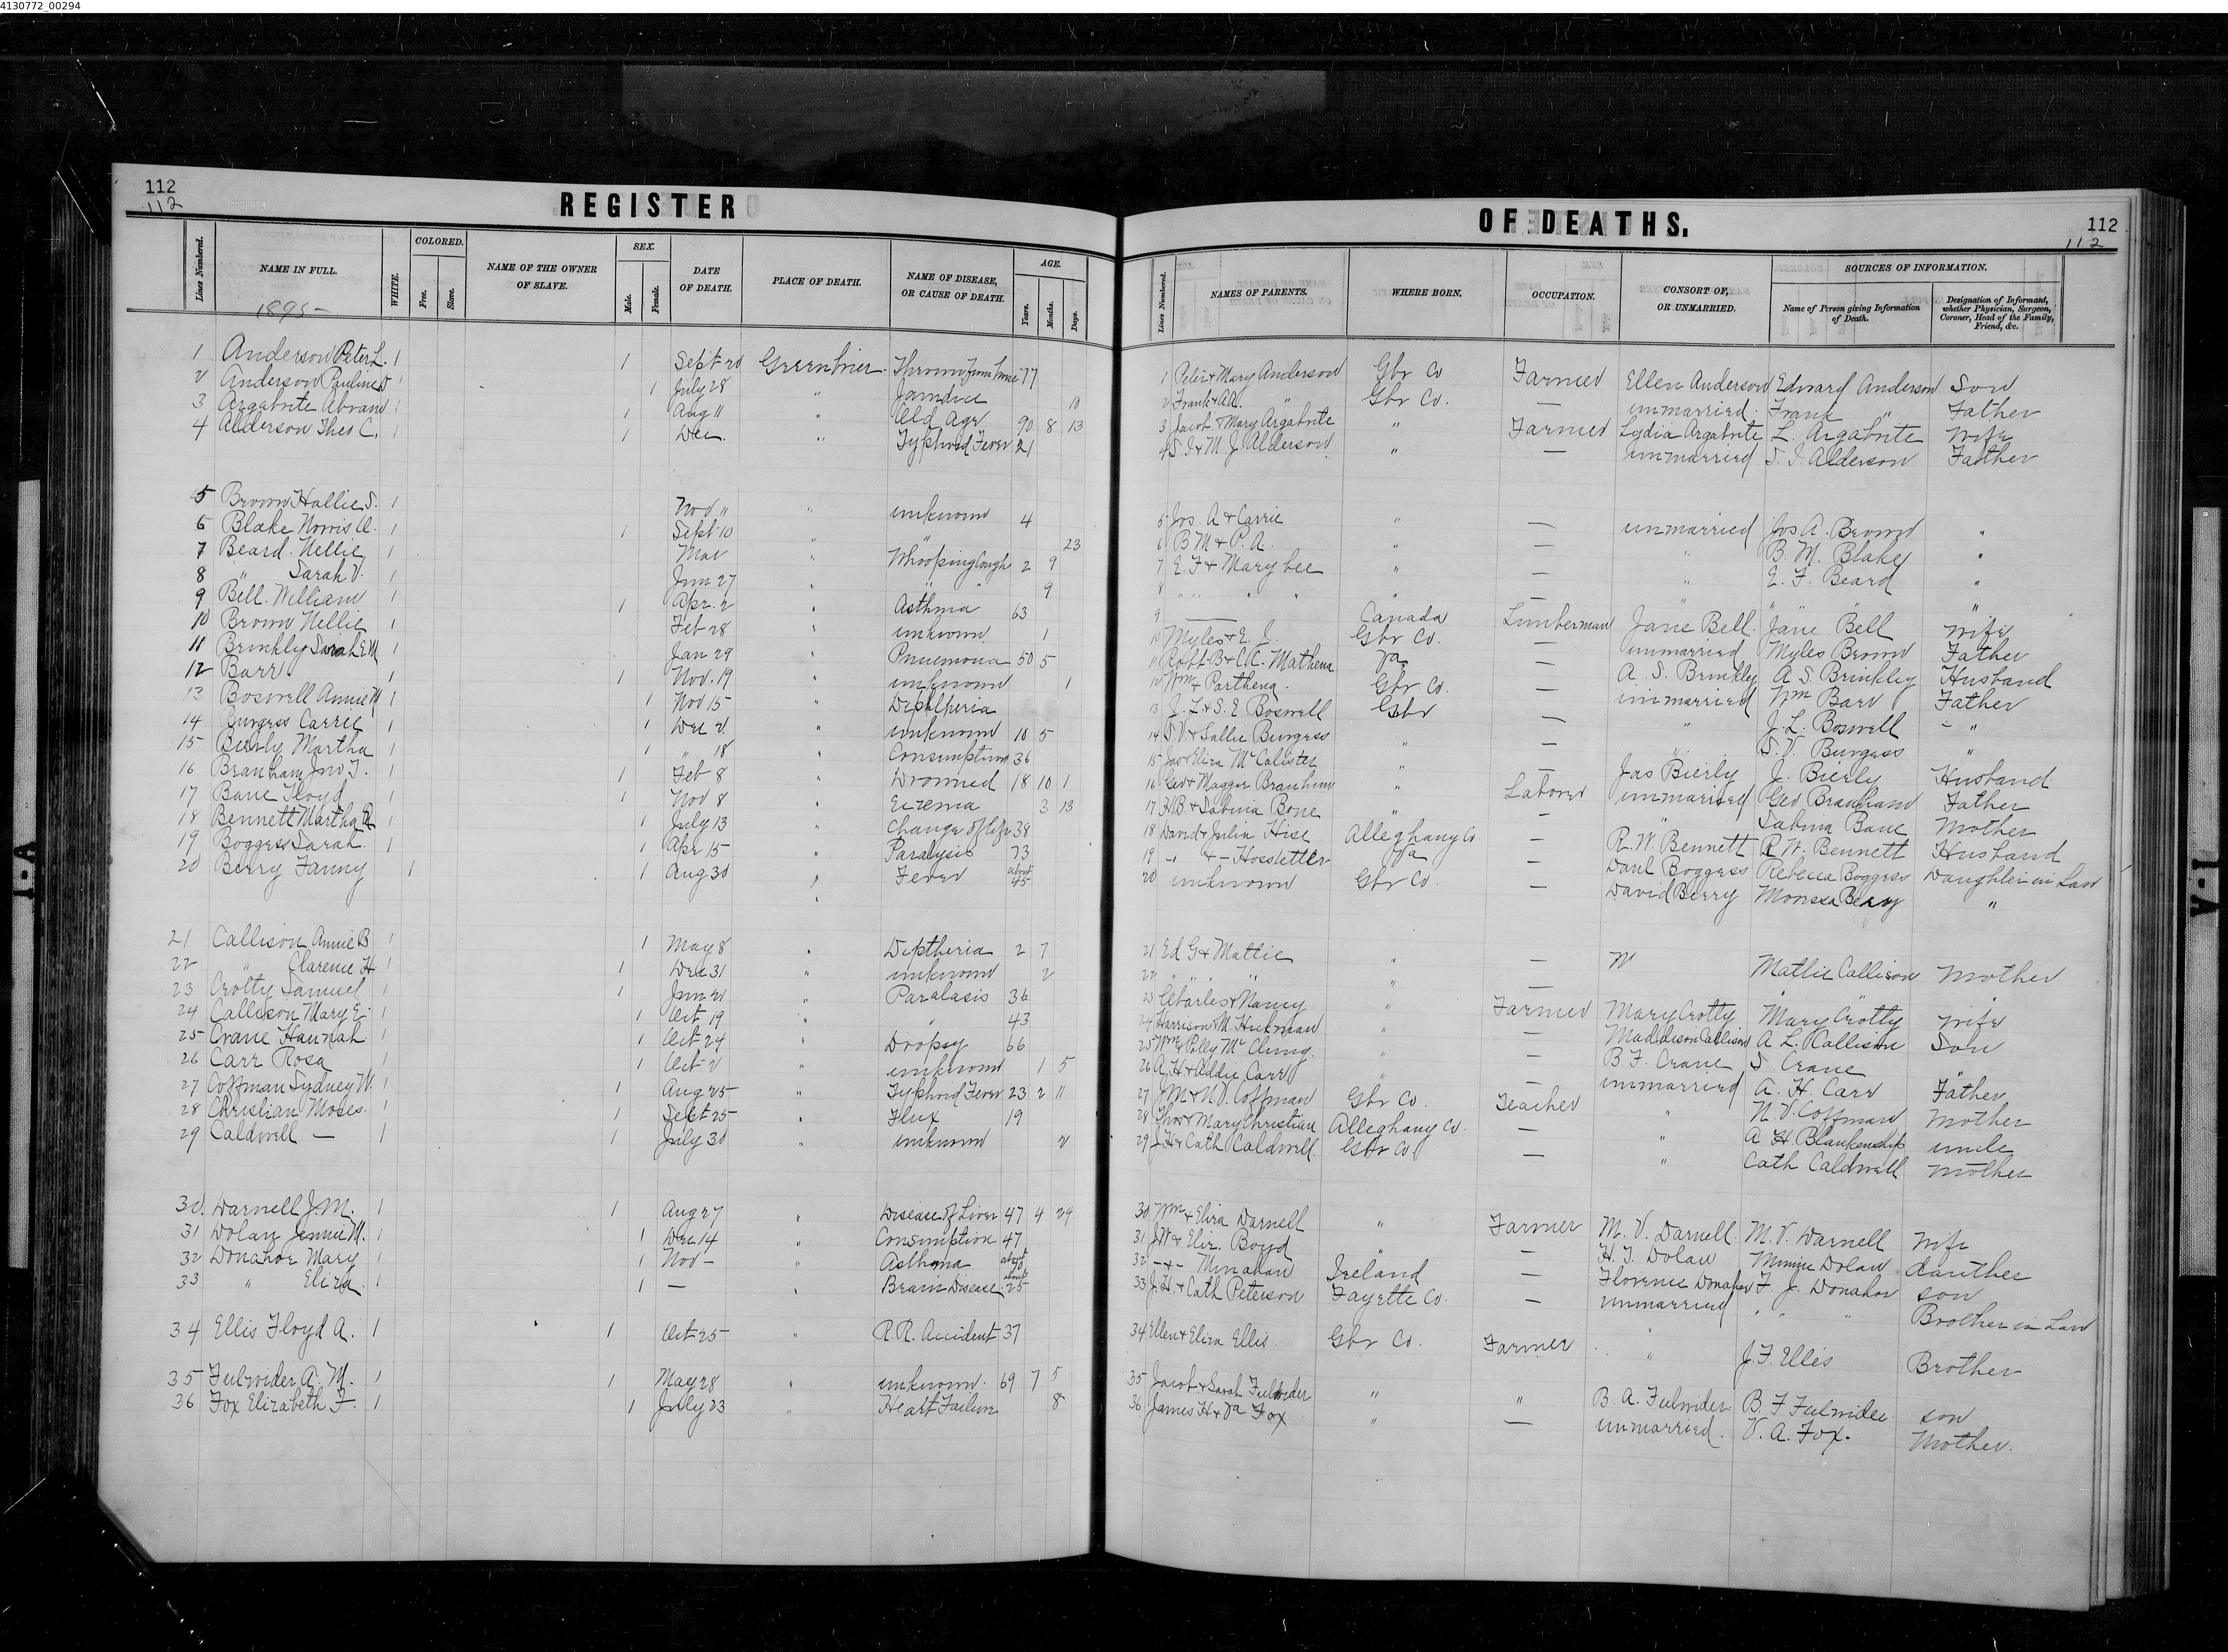 4130772_00294
112
112
REGISTER
Lines Numbered. NAME IN FULL. WHITE. COLORED. Free. Slave. NAME OF THE OWNER OF SLAVE. SEX. Male. Female. DATE OF DEATH. PLACE OF DEATH. NAME OF DISEASE, OR CAUSE OF DEATH. AGE. Years. Months. Days.
1895-
1 Anderson Peter L. 1 1 Sept 20 Greenbrier Thrown from horse 77
2 Anderson Pauline 1 1 July 28 " Jamdice 10
3 Argabrite Abram 1 1 Aug 11 " Old Age 90 8 13
4 Alderson Theo C. 1 1 Dec. " Typhoid Fever 21
5 Brown Hallie S. 1 Nov " " unknown 4
6 Blake Norris O. 1 1 Sept 10 " " 23
7 Beard Nellie 1 Mar " Whooping Cough 2 9
8 " Sarah V. 1 Jun 27 " " " 9
9 Bell William 1 1 Apr. 2 " Asthma 63
10 Brown Nellie 1 Feb 28 " unknown 1
11 Brinkly Sarah E M 1 Jan 29 " Pnuemona 50 5
12 Barr 1 1 Nov. 19 " unknown 1
13 Boswell Annie M 1 1 Nov 15 " Diphtheria
14 Burgess Carree 1 1 Dec 2 " unknown 10 5
15 Bierly Martha 1 1 " 18 " Consumption 36
16 Branham Jno T. 1 1 Feb 8 " Drowned 18 10 1
17 Bane Floyd 1 1 Nov 8 " Eczema 3 13
18 Bennett Martha R 1 1 July 13 " Change of life 38
19 Boggess Sarah 1 1 Apr 15 " Paralysis 73
20 Berry Fanny 1 1 Aug 30 " Fever about 45
21 Callison Annie B 1 1 May 8 " Diptheria 2 7
22 " Clarence H 1 1 Dec 31 " unknown 2
23 Crotty Samuel 1 1 Jun 21 " Paralasis 36
24 Callison Mary E. 1 1 Oct 19 " " 43
25 Crane Hannah 1 1 Oct 24 " Dropsy 66
26 Carr Rosa 1 1 Oct 2 " unknown 1 5
27 Coffman Sydney W. 1 1 Aug 25 " Typhoid Fever 23 2 11
28 Christian Moses. 1 1 Sept 25 " Flux 19
29 Caldwell — 1 1 July 30 " unknown 2
30. Darnell J. M. 1 1 Aug 27 " Disease of Liver 47 4 29
31 Dolan Jennie M. 1 1 Dec 14 " Consumption 47
32 Donahoe Mary 1 1 Nov - " Asthma about
33 " Eliza 1 1 — " Brain Disease about 25
34 Ellis Floyd A. 1 1 Oct 25 " R.R. Accident 37
35 Fulwider A. M. 1 1 May 28 " unknown. 69 7 5
36 Fox Elizabeth F. 1 1 July 23 " Heart Failure 8
OF DEATHS.
112
112
Lines Numbered. NAMES OF PARENTS. WHERE BORN. OCCUPATION. CONSORT OF, OR UNMARRIED. SOURCES OF INFORMATION. Name of Person giving Information of Death. Designation of Informant, whether Physician, Surgeon, Coroner, Head of the Family, Friend, &c.
1 Peter & Mary Anderson Gbr Co Farmer Ellen Anderson Edward Anderson Son
2 Frank & A.A. " Gbr Co. — unmarried. Frank " Father
3 Jacob & Mary Argabrite " Farmer Lydia Argabrite L. Argabrite Wife
4 S. I. & M. J. Alderson " — unmarried S. I. Alderson Father
5 Jos. A & Carrie " — unmarried Jos A. Brown "
6 B M & P. A. " — " B. M. Blake "
7 E. F & Mary Lee " — " E. F. Beard "
8 " " " " — " "
9 — Canada Lumberman Jane Bell. Jane Bell Wife
10 Myles & E. J. Gbr Co. — unmarried Myles Brown Father
11 Robt. B & C. C. Mathena Va — A. S. Brinkly A S. Brinkley Husband
12 Wm & Parthena. Gbr Co. — unmarried Wm Barr Father
13 J. L & S. E Boswell Gbr — " J. L. Boswell "
14 S. V. & Sallie Burgess " — S. V. Burgess "
15 Jas & Eliza McCalister " — Jas Bierly J. Bierly Husband
16 Geo & Maggie Branham " Laborer unmarried Geo Branham Father
17 H. B. & Sabina Bone " — " Sabina Bane Mother
18 David & Julia Hise Alleghany Co — R. W. Bennett R. W. Bennett Husband
19 - & - Hosstetter Va — Danl Boggess Rebecca Boggess Daughter in Law
20 unknown Gbr Co. — David Berry Monssa Berry "
21 Ed G & Mattie " — Mattie Callison Mother
22 " " " " "
23 Charles & Nancy " Farmer Mary Crotty Mary Crotty Wife
24 Harrison & M. Hickman " — Maddison Callison A L. Kallison Son
25 Wm & Polly McClung. " — B. F. Crane S Crane "
26 A. H & Addie Carr " — unmarried A. H. Carr Father
27 J. M & N. V. Coffman Gbr Co. Teacher " N. V. Coffman Mother
28 Thos & Mary Christian Alleghany Co. — " A H. Blankenship uncle
29 J. H & Cath Caldwell Gbr Co — " Cath Caldwell Mother
30 Wm & Eliza Darnell " Farmer M. V. Darnell. M. V. Darnell Wife
31 J W & Eliz. Boyd " — H. T. Dolan Minnie Dolan dauther
32 - & - Minahan Ireland — Florence Donahoe F J. Donahoe son
33 J. H. & Cath Peterson Fayette Co. — unmarried " " Brother in Law
34 Ellen & Eliza Ellis Gbr Co. Farmer " J. F. Ellis Brother
35 Jacob & Sarah Fulwider " " B. A. Fulwider B. F Fulwider son
36 James H & Va Fox " — unmarried. V. A. Fox. Mother.